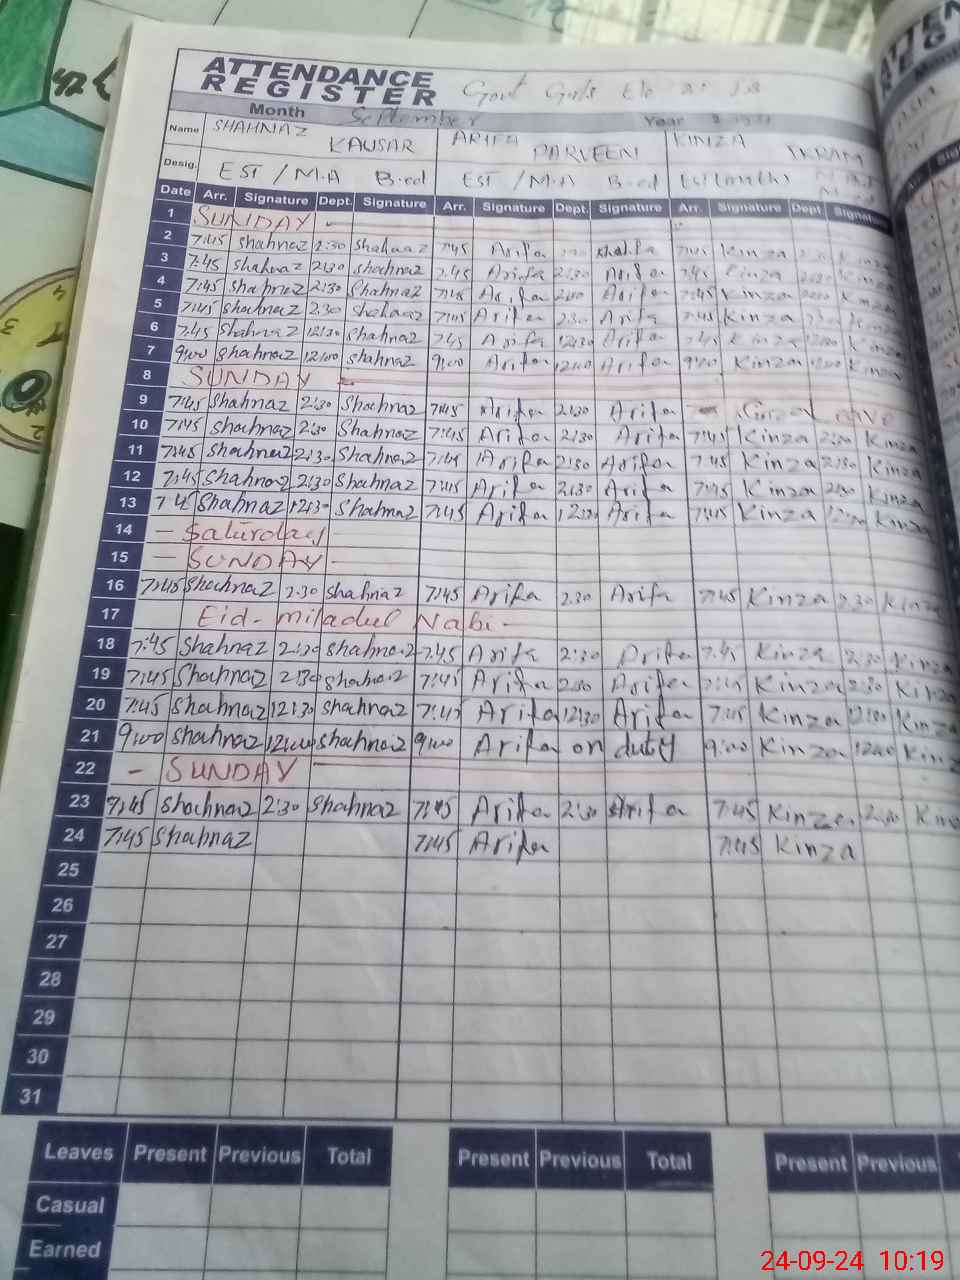 ATTENDANCE
REGISTER Govt Girls
Month September Year
Name SHAHNAZ KAUSAR ARIFA PARVEEN KINZA IKRAM
Desig. EST / M.A B.ed EST / M.A B.ed
Date Arr. Signature Dept. Signature Arr. Signature Dept. Signature Arr. Signature Dept. Signature
1 SUNDAY
2 7:45 Shahnaz 2:30 Shahnaz 7:45 Arifa 7:45 Kinza Kinza
3 7:45 Shahnaz 2:30 Shahnaz 7:45 Arifa 2:30 Arifa 7:45 Kinza Kinza
4 7:45 Shahnaz 2:30 Shahnaz 7:45 Arifa 2:30 Arifa 7:45 Kinza Kinza
5 7:45 Shahnaz 2:30 Shahnaz 7:45 Arifa 2:30 Arifa 7:45 Kinza
6 7:45 Shahnaz 12:30 Shahnaz 7:45 Arifa 12:30 Arifa 7:45 Kinza Kinza
7 9:00 Shahnaz 12:00 Shahnaz 9:00 Arifa 12:00 Arifa 9:00 Kinza 12:00 Kinza
8 SUNDAY
9 7:45 Shahnaz 2:30 Shahnaz 7:45 Arifa 2:30 Arifa Leave
10 7:45 Shahnaz 2:30 Shahnaz 7:45 Arifa 2:30 Arifa 7:45 Kinza 2:30 Kinza
11 7:45 Shahnaz 2:30 Shahnaz 7:45 Arifa 2:30 Arifa 7:45 Kinza 2:30 Kinza
12 7:45 Shahnaz 2:30 Shahnaz 7:45 Arifa 2:30 Arifa 7:45 Kinza 2:30 Kinza
13 7:45 Shahnaz 12:30 Shahnaz 7:45 Arifa 12:30 Arifa 7:45 Kinza Kinza
14 - Saturday
15 - SUNDAY -
16 7:45 Shahnaz 2:30 Shahnaz 7:45 Arifa 2:30 Arifa 7:45 Kinza 2:30 Kinza
17 Eid-miladul Nabi -
18 7:45 Shahnaz 2:30 Shahnaz 7:45 Arifa 2:30 Arifa 7:45 Kinza 2:30 Kinza
19 7:45 Shahnaz 2:30 Shahnaz 7:45 Arifa 2:30 Arifa 7:45 Kinza 2:30 Kinza
20 7:45 Shahnaz 12:30 Shahnaz 7:45 Arifa 12:30 Arifa 7:45 Kinza Kinza
21 9:00 Shahnaz 12:00 Shahnaz 9:00 Arifa on duty 9:00 Kinza 12:00 Kinz
22 - SUNDAY
23 7:45 Shahnaz 2:30 Shahnaz 7:45 Arifa 2:30 Arifa 7:45 Kinza 2:30
24 7:45 Shahnaz 7:45 Arifa 7:45 Kinza
25
26
27
28
29
30
31
Leaves Present Previous Total Present Previous Total Present Previous
Casual
Earned
24-09-24 10:19